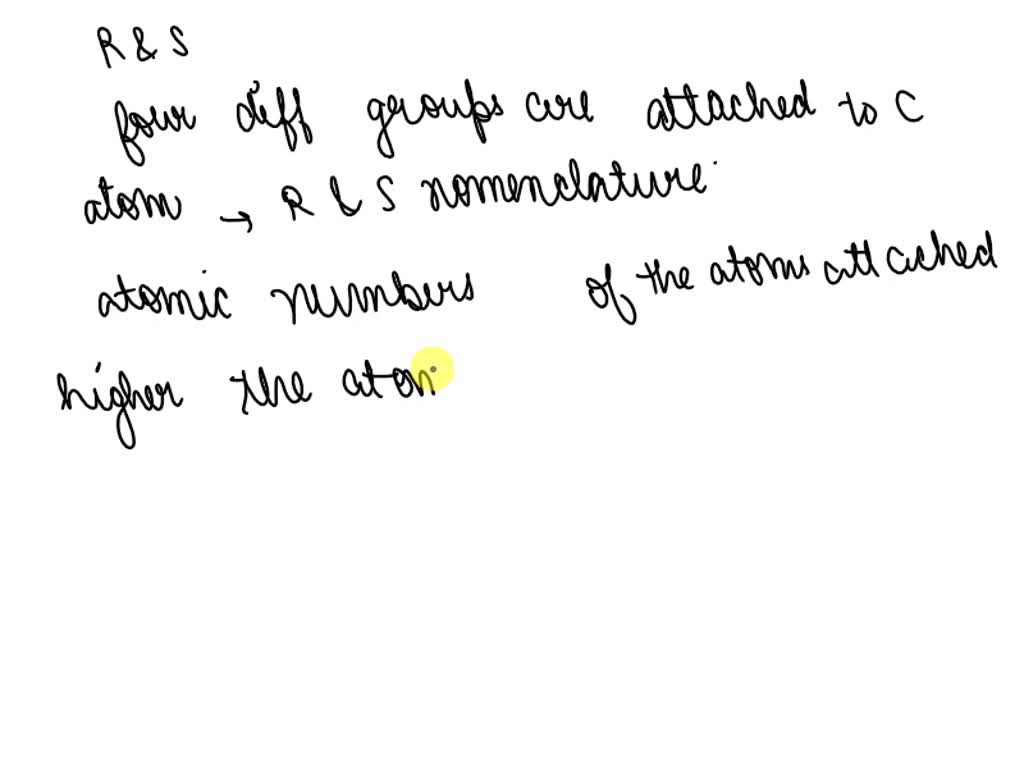 R & S
four diff groups are attached to C
atom → R & S nomenclature
atomic numbers of the atoms attached
higher the atom